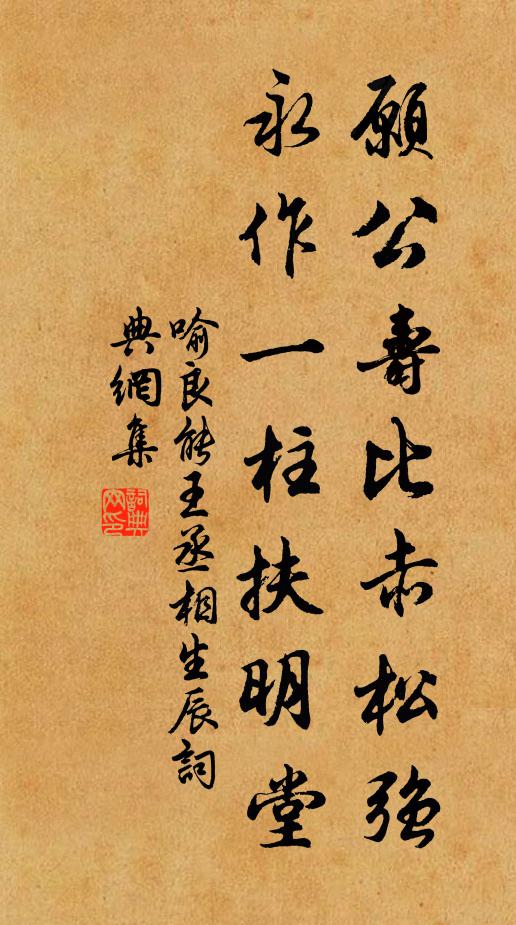 願公壽比赤松強
永作一柱扶明堂
喻良能王丞相生辰詞
典網集
詞典網印